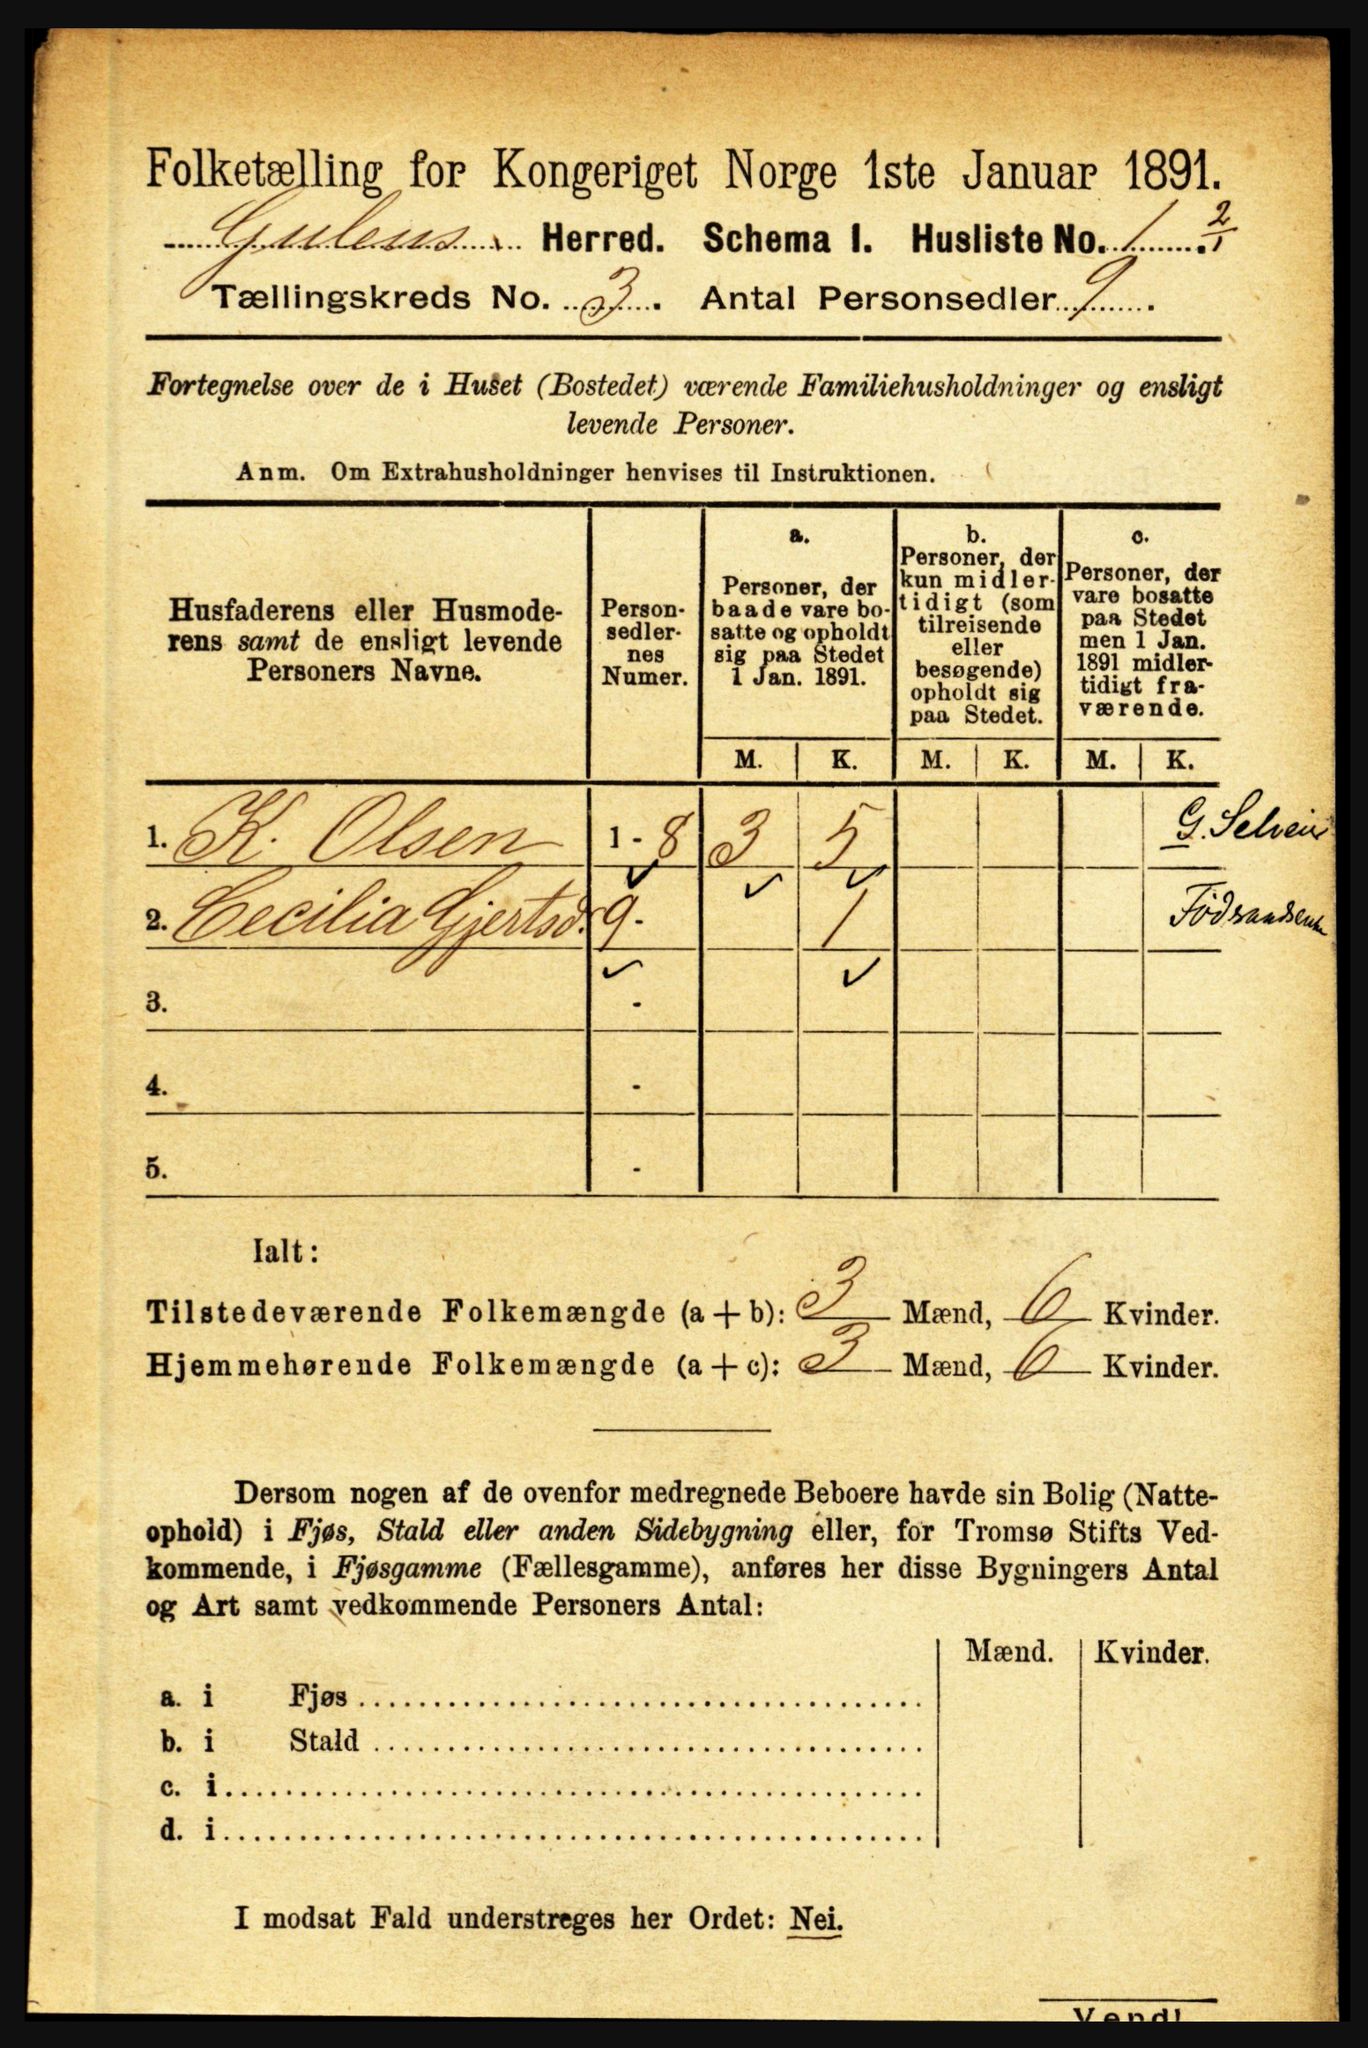 Folketælling for Kongeriget Norge 1ste Januar 1891.
Gulens Herred. Schema I. Husliste No. 1 2/1
Tællingskreds No. 3. Antal Personsedler 9.
Fortegnelse over de i Huset (Bostedet) værende Familiehusholdninger og ensligt
levende Personer.
Anm. Om Extrahusholdninger henvises til Instruktionen.
Husfaderens eller Husmode-
rens samt de ensligt levende
Personers Navne.
Person-
sedler-
nes
Numer.
a.
Personer, der
baade vare bo-
satte og opholdt
sig paa Stedet
1 Jan. 1891.
b.
Personer, der
kun midler-
tidigt (som
tilreisende
eller
besøgende)
opholdt sig
paa Stedet.
c.
Personer, der
vare bosatte
paa Stedet
men 1 Jan.
1891 midler-
tidigt fra-
værende.
M. K. M. K. M. K.
1. K. Olsen 1 - 8 3 5 G.
2. Cecilia Gjertsd. 9 - 1
3. -
4. -
5. -
Ialt:
Tilstedeværende Folkemængde (a + b): 3 Mænd, 6 Kvinder.
Hjemmehørende Folkemængde (a + c): 3 Mænd, 6 Kvinder.
Dersom nogen af de ovenfor medregnede Beboere havde sin Bolig (Natte-
ophold) i Fjøs, Stald eller anden Sidebygning eller, for Tromsø Stifts Ved-
kommende, i Fjøsgamme (Fællesgamme), anføres her disse Bygningers Antal
og Art samt vedkommende Personers Antal:
Mænd. Kvinder.
a. i Fjøs
b. i Stald
c. i
d. i
I modsat Fald understreges her Ordet: Nei.
Vend!